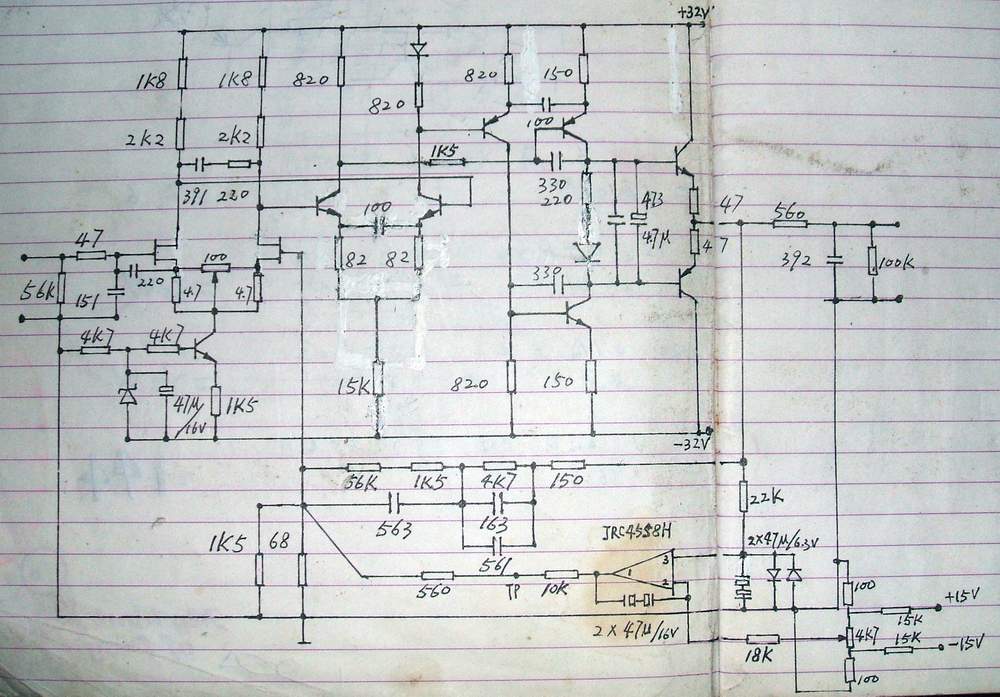 +32V
1K8 1K8 820 820 150
820
2K2 2K2 100
1K5
391 220 330 473
100 220 47
47 4.7μ 560
100 82 82 47 392 100K
56K 220 330
151 4.7 4.7
4K7 4K7
15K 820 150
47μ/16V 1K5
-32V
56K 1K5 4K7 150
22K
563 163
1K5 68 561 JRC4558H 2×47μ/6.3V
3
1
2
560 TP 10K 100
+15V
15K
2×47μ/16V 4K7 15K
-15V
18K
100